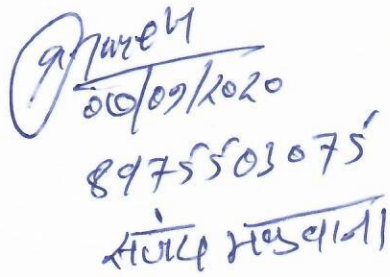 00/09/2020
8975503075
संजय मकवाना